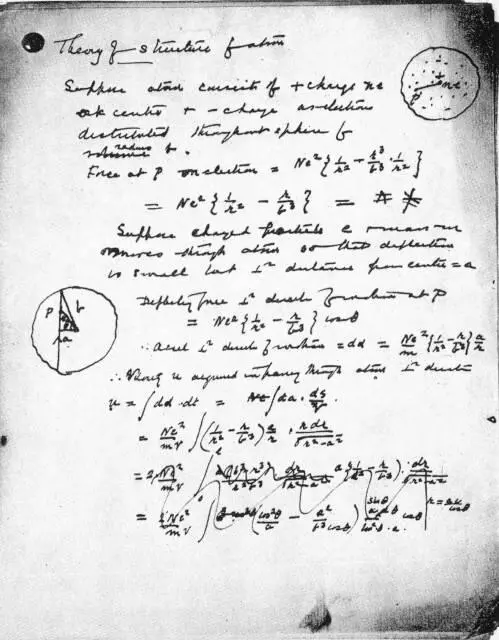 Theory of structure of atoms
Suppose atom consists of + charge ne
at centre + - charge as electrons
distributed throughout sphere of
radius b.
Force at P on electron = Ne² {1/r² - r³/b³ · 1/r²}
= Ne² {1/r² - r/b³} =
Suppose charged particle e & mass m
moves through atom so that deflection
is small but ⊥ʳ distance from centre = a
Deflecting force ⊥ʳ direct. of motion at P
= Ne² {1/r² - r/b³} cos θ
∴ accel ⊥ʳ direct of motion = dd = Ne²/m {1/r² - r/b³} a/r
∴ Velocity u acquired in passing through atom ⊥ʳ direct
u = ∫ dd · dt = ∫ da · ds/V
= Ne²/mV ∫ (1/r² - r/b³) a/r · r dr/√r²-a²
= 2 · Ne²/mV ∫ a (1/r² - r/b³) · dr/√r²-a²
= 2Ne²/mV ∫ (cos²θ/a - a²/b³ cos θ)
P b a
P + ne